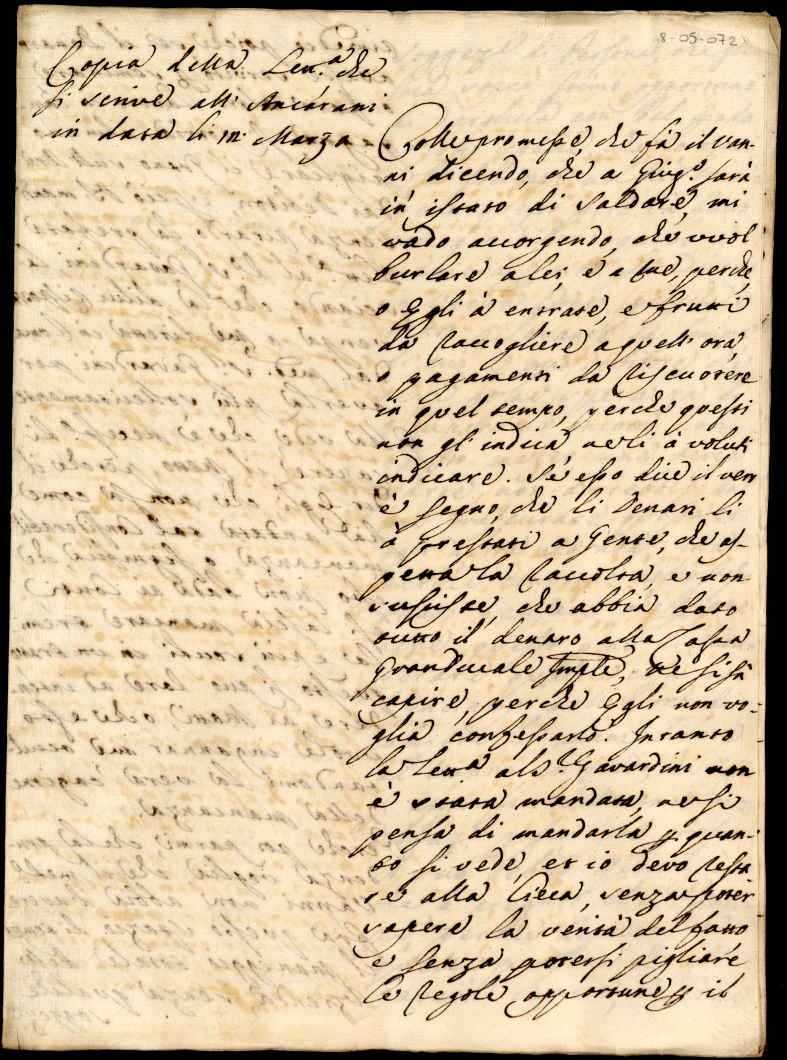 8-05-072
Copia della Lett.ª che
si scrive all' Ancarani
in data li 111 Marzo
Colle promesse, che fà il Van-
ni dicendo, che a Giug.º sarà
in istato di saldare, mi
vado accorgendo, che vuol
burlare a lei, e a me, perche,
o Egli à entrate, e frutti
da raccogliere a quell' ora,
o pagamenti da riscuotere
in quel tempo, perche questi
non gl' indica ne li à voluti
indicare. Se esso dice il vero
è segno, che li Denari li
à prestati a Gente, che as-
petta la raccolta, e non
sussiste, che abbia dato
tutto il denaro alla Cassa
Granducale, ne si sà
capire, perche Egli non vo-
glia confessarlo. Intanto
la lett.ª al S.r Gavardini non
è stata mandata, ne si
pensa di mandarla p quan-
to si vede, et io devo resta
re alla Cieca, senza poter
sapere la verità del fatto
e senza potersi pigliare
le regole opportune p il